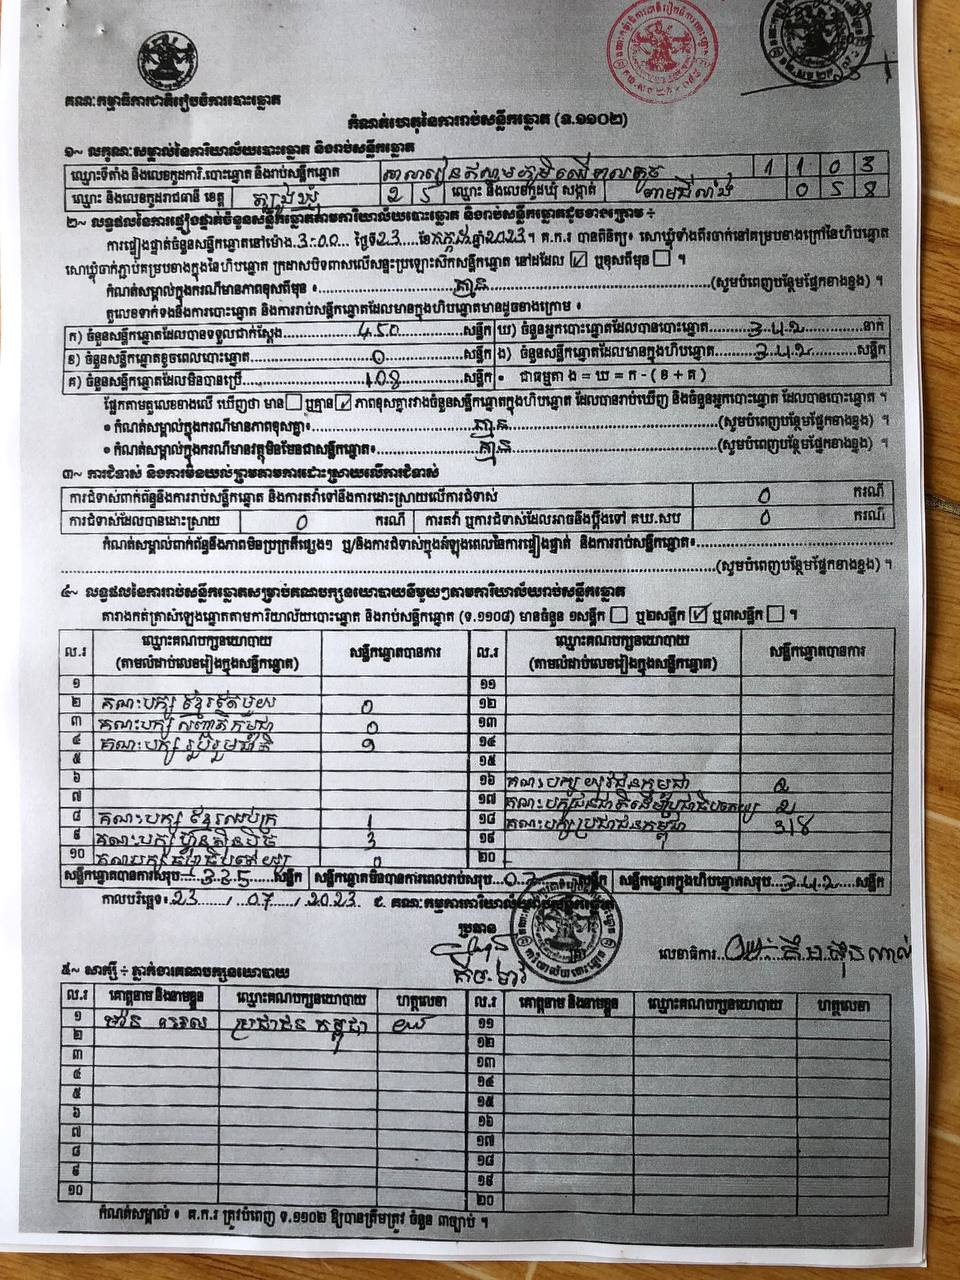 គណៈកម្មាធិការជាតិរៀបចំការបោះឆ្នោត
កំណត់ហេតុនៃការរាប់សន្លឹកឆ្នោត (ទ.១១០២)
១~ លក្ខណៈសម្គាល់នៃការិយាល័យបោះឆ្នោត និងរាប់សន្លឹកឆ្នោត
ឈ្មោះទីតាំង និងលេខកូដការិ.បោះឆ្នោត និងរាប់សន្លឹកឆ្នោត 1 1 0 3
ឈ្មោះ និងលេខកូដរាជធានី ខេត្ត ត្បូងឃ្មុំ 2 5 ឈ្មោះ និងលេខកូដឃុំ សង្កាត់ 0 5 8
២~ លទ្ធផលនៃការផ្ទៀងផ្ទាត់ចំនួនសន្លឹកឆ្នោតតាមការិយាល័យបោះឆ្នោត និងរាប់សន្លឹកឆ្នោតដូចខាងក្រោម ÷
ការផ្ទៀងផ្ទាត់ចំនួនសន្លឹកឆ្នោតនៅម៉ោង.3:00 ថ្ងៃទី23 ខែកក្កដា ឆ្នាំ2023។ គ.ក.រ បានពិនិត្យ៖ សោឃ្មុំទាំងពីរចាក់នៅគម្របខាងក្រៅនៃហិបឆ្នោត
សោឃ្មុំចាក់ភ្ជាប់គម្របខាងក្នុងនៃហិបឆ្នោត ក្រដាសបិទពាសលើសន្ទះប្រឡោះសឹកសន្លឹកឆ្នោត នៅដដែល ☑ ឬខុសពីមុន ☐ ។
កំណត់សម្គាល់ក្នុងករណីមានភាពខុសពីមុន ៖ គ្មាន (សូមបំពេញបន្ថែមផ្នែកខាងខ្នង) ។
តួលេខទាក់ទងនឹងការបោះឆ្នោត និងការរាប់សន្លឹកឆ្នោតដែលមានក្នុងហិបឆ្នោតមានដូចខាងក្រោម ៖
ក) ចំនួនសន្លឹកឆ្នោតដែលបានទទួលជាក់ស្តែង 450 សន្លឹក ឃ) ចំនួនអ្នកបោះឆ្នោតដែលបានបោះឆ្នោត 342 នាក់
ខ) ចំនួនសន្លឹកឆ្នោតខូចពេលបោះឆ្នោត 0 សន្លឹក ង) ចំនួនសន្លឹកឆ្នោតដែលមានក្នុងហិបឆ្នោត 342 សន្លឹក
គ) ចំនួនសន្លឹកឆ្នោតដែលមិនបានប្រើ 108 សន្លឹក • ជាធម្មតា ង = ឃ = ក - ( ខ + គ )
ផ្អែកតាមតួលេខខាងលើ ឃើញថា មាន ☐ ឬគ្មាន ☑ ភាពខុសគ្នារវាងចំនួនសន្លឹកឆ្នោតក្នុងហិបឆ្នោត ដែលបានរាប់ឃើញ និងចំនួនអ្នកបោះឆ្នោត ដែលបានបោះឆ្នោត ។
• កំណត់សម្គាល់ក្នុងករណីមានភាពខុសគ្នា៖ គ្មាន (សូមបំពេញបន្ថែមផ្នែកខាងខ្នង) ។
• កំណត់សម្គាល់ក្នុងករណីមានវត្ថុមិនមែនជាសន្លឹកឆ្នោត៖ គ្មាន (សូមបំពេញបន្ថែមផ្នែកខាងខ្នង) ។
៣~ ការជំទាស់ និងការមិនយល់ព្រមតាមការដោះស្រាយលើការជំទាស់
ការជំទាស់ពាក់ព័ន្ធនឹងការរាប់សន្លឹកឆ្នោត និងការតវ៉ាទៅនឹងការដោះស្រាយលើការជំទាស់ 0 ករណី
ការជំទាស់ដែលបានដោះស្រាយ 0 ករណី ការតវ៉ា ឬការជំទាស់ដែលអាចនឹងប្តឹងទៅ គឃ.សប 0 ករណី
កំណត់សម្គាល់ពាក់ព័ន្ធនឹងភាពមិនប្រក្រតីផ្សេងៗ ឬ/និងការជំទាស់ក្នុងអំឡុងពេលនៃការផ្ទៀងផ្ទាត់ និងការរាប់សន្លឹកឆ្នោត៖
(សូមបំពេញបន្ថែមផ្នែកខាងខ្នង) ។
៤~ លទ្ធផលនៃការរាប់សន្លឹកឆ្នោតសម្រាប់គណបក្សនយោបាយនីមួយៗតាមការិយាល័យរាប់សន្លឹកឆ្នោត
តារាងកត់ត្រាសំឡេងឆ្នោតតាមការិយាល័យបោះឆ្នោត និងរាប់សន្លឹកឆ្នោត (ទ.១១០៨) មានចំនួន ១សន្លឹក ☐ ឬ២សន្លឹក ☑ ឬ៣សន្លឹក ☐ ។
ល.រ ឈ្មោះគណបក្សនយោបាយ (តាមលំដាប់លេខរៀងក្នុងសន្លឹកឆ្នោត) សន្លឹកឆ្នោតបានការ ល.រ ឈ្មោះគណបក្សនយោបាយ (តាមលំដាប់លេខរៀងក្នុងសន្លឹកឆ្នោត) សន្លឹកឆ្នោតបានការ
១ ១១
២ គណៈបក្ស ខ្មែរតែមួយ 0 ១២
៣ គណៈបក្ស សញ្ជាតិកម្ពុជា 0 ១៣
៤ គណៈបក្ស រួបរួមជាតិ ១៤
៥ ១៥
៦ ១៦ គណៈបក្ស យុវជនកម្ពុជា 2
៧ ១៧ គណៈបក្សជនជាតិដើមប្រជាធិបតេយ្យ 2
៨ គណៈបក្ស ខ្មែរឈប់ក្រ 1 ១៨ គណៈបក្សប្រជាជនកម្ពុជា 318
៩ គណៈបក្ស ហ្វ៊ុនស៊ិនប៉ិច 3 ១៩
១០ 0 ២០
សន្លឹកឆ្នោតបានការសរុប 335 សន្លឹក សន្លឹកឆ្នោតមិនបានការពេលរាប់សរុប 07 សន្លឹក សន្លឹកឆ្នោតក្នុងហិបឆ្នោតសរុប 342 សន្លឹក
កាលបរិច្ឆេទ៖ 23 / 07 / 2023 ជ. គណៈកម្មការការិយាល័យរាប់សន្លឹកឆ្នោត
ប្រធាន
លេខាធិការ
៥~ សាក្សី ÷ ភ្នាក់ងារគណបក្សនយោបាយ
ល.រ គោត្តនាម និងនាមខ្លួន ឈ្មោះគណបក្សនយោបាយ ហត្ថលេខា ល.រ គោត្តនាម និងនាមខ្លួន ឈ្មោះគណបក្សនយោបាយ ហត្ថលេខា
១ ប្រជាជន កម្ពុជា ១១
២ ១២
៣ ១៣
៤ ១៤
៥ ១៥
៦ ១៦
៧ ១៧
៨ ១៨
៩ ១៩
១០ ២០
កំណត់សម្គាល់ ៖ គ.ក.រ ត្រូវបំពេញ ទ.១១០២ ឱ្យបានត្រឹមត្រូវ ចំនួន ៣ច្បាប់ ។